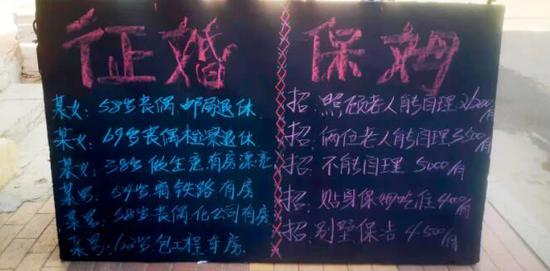 征婚
某女：58岁丧偶邮局退休
某女：69岁丧偶退休
某女：38岁做生意有房漂亮
某男：54岁离铁路有房
某男：58岁丧偶化公司有房
某男：62岁包工程车房
保姆
招：照顾老人能自理2600/月
招：俩位老人能自理3500/月
招：不能自理 5000/月
招：贴身保姆吃住4000/月
招：别墅保洁 4500/月